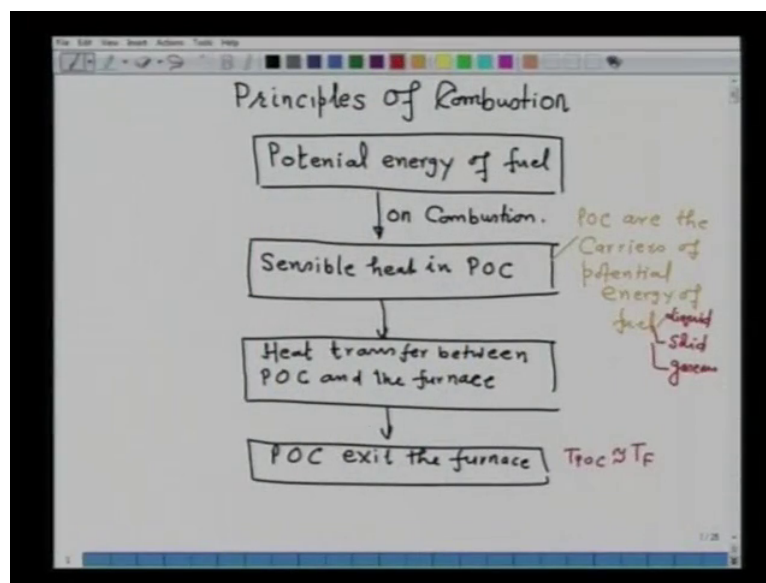 File Edit View Insert Actions Tools Help
Principles of Combustion
Potenial energy of fuel
on Combustion.
POC are the
Carriers of
potential
energy of
fuel
Liquid
Solid
gaseous
Sensible heat in POC
Heat transfer between
POC and the furnace
POC exit the furnace
TPOC ≈ TF
1/28
1